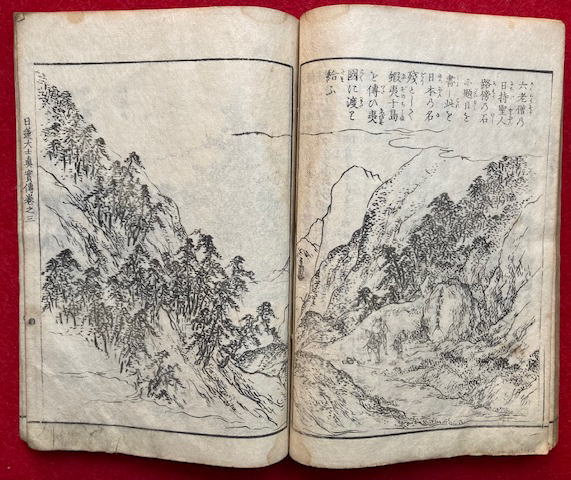 六老僧乃
日持聖人
路傍乃石
に題目を
書し此を
日本乃名
殘として
蝦夷千島
を傳ひ夷
國に渡り
給ふ
日蓮大士眞實傳卷之三